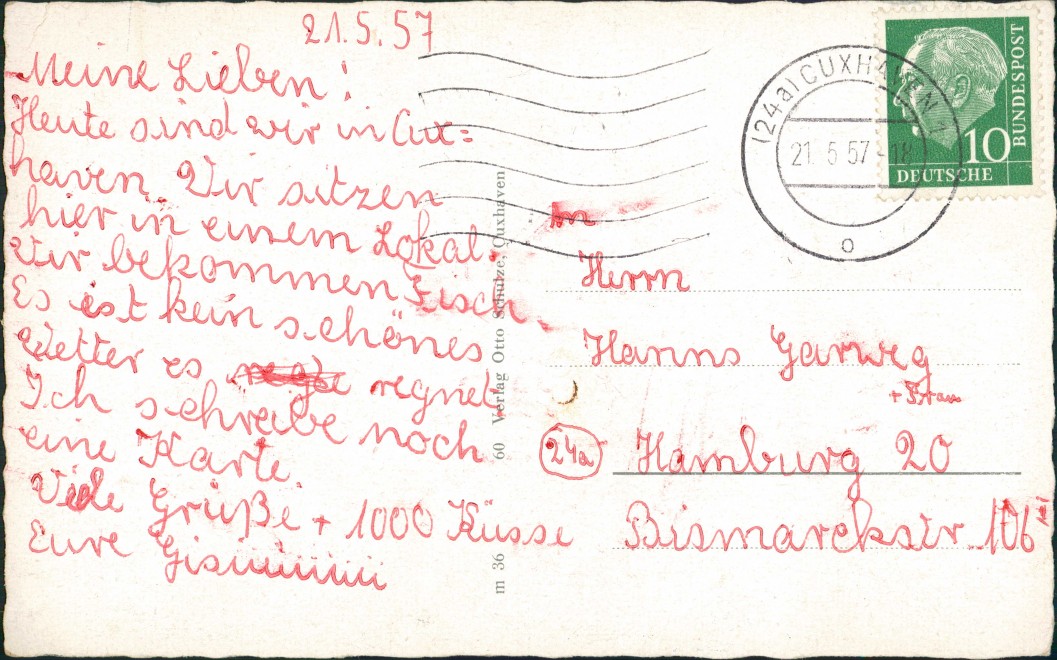 21.5.57
Meine Lieben!
Heute sind wir in Cux=
haven. Wir sitzen
hier in einem Lokal.
Wir bekommen Fisch.
Es ist kein schönes
Wetter es regnet
Ich schreibe noch
eine Karte.
Viele Grüße + 1000 Küsse
Eure
m 36 60 Verlag Otto Schulze, Cuxhaven
(24a) CUXHAVEN 1
21. 5 57 -18
o
BUNDESPOST
10
DEUTSCHE
An
Herrn
Hanns Garweg
+ Frau
24a Hamburg 20
Bismarckstr. 106